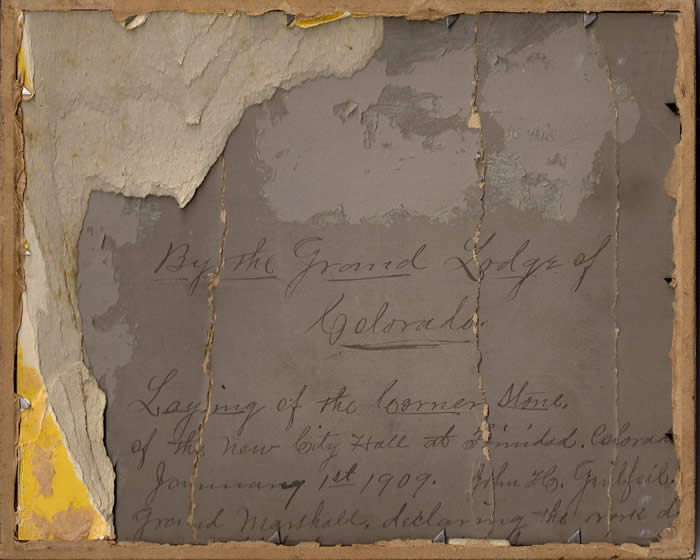 By the Grand Lodge of
Colorado.
Laying of the Corner Stone,
of the New City Hall at Trinidad. Colorad
January 1st 1909. John H.
Grand Marshall, declaring the work d